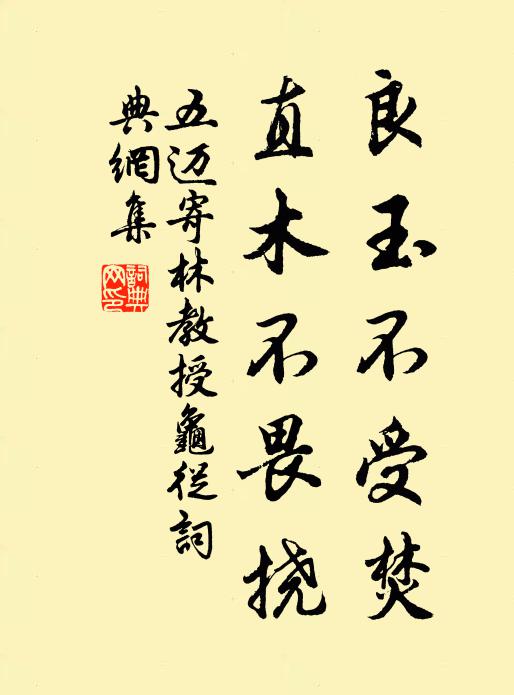 良玉不受焚
直木不畏挠
五迈寄林教授龜從詞
典網集
詞典
网印